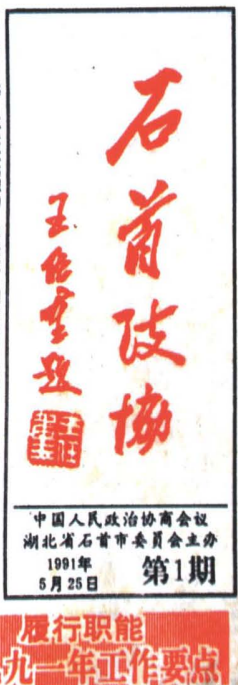 石首政协
王任重题
中国人民政治协商会议
湖北省石首市委员会主办
1991年
5月25日
第1期
履行职能
九一年工作要点